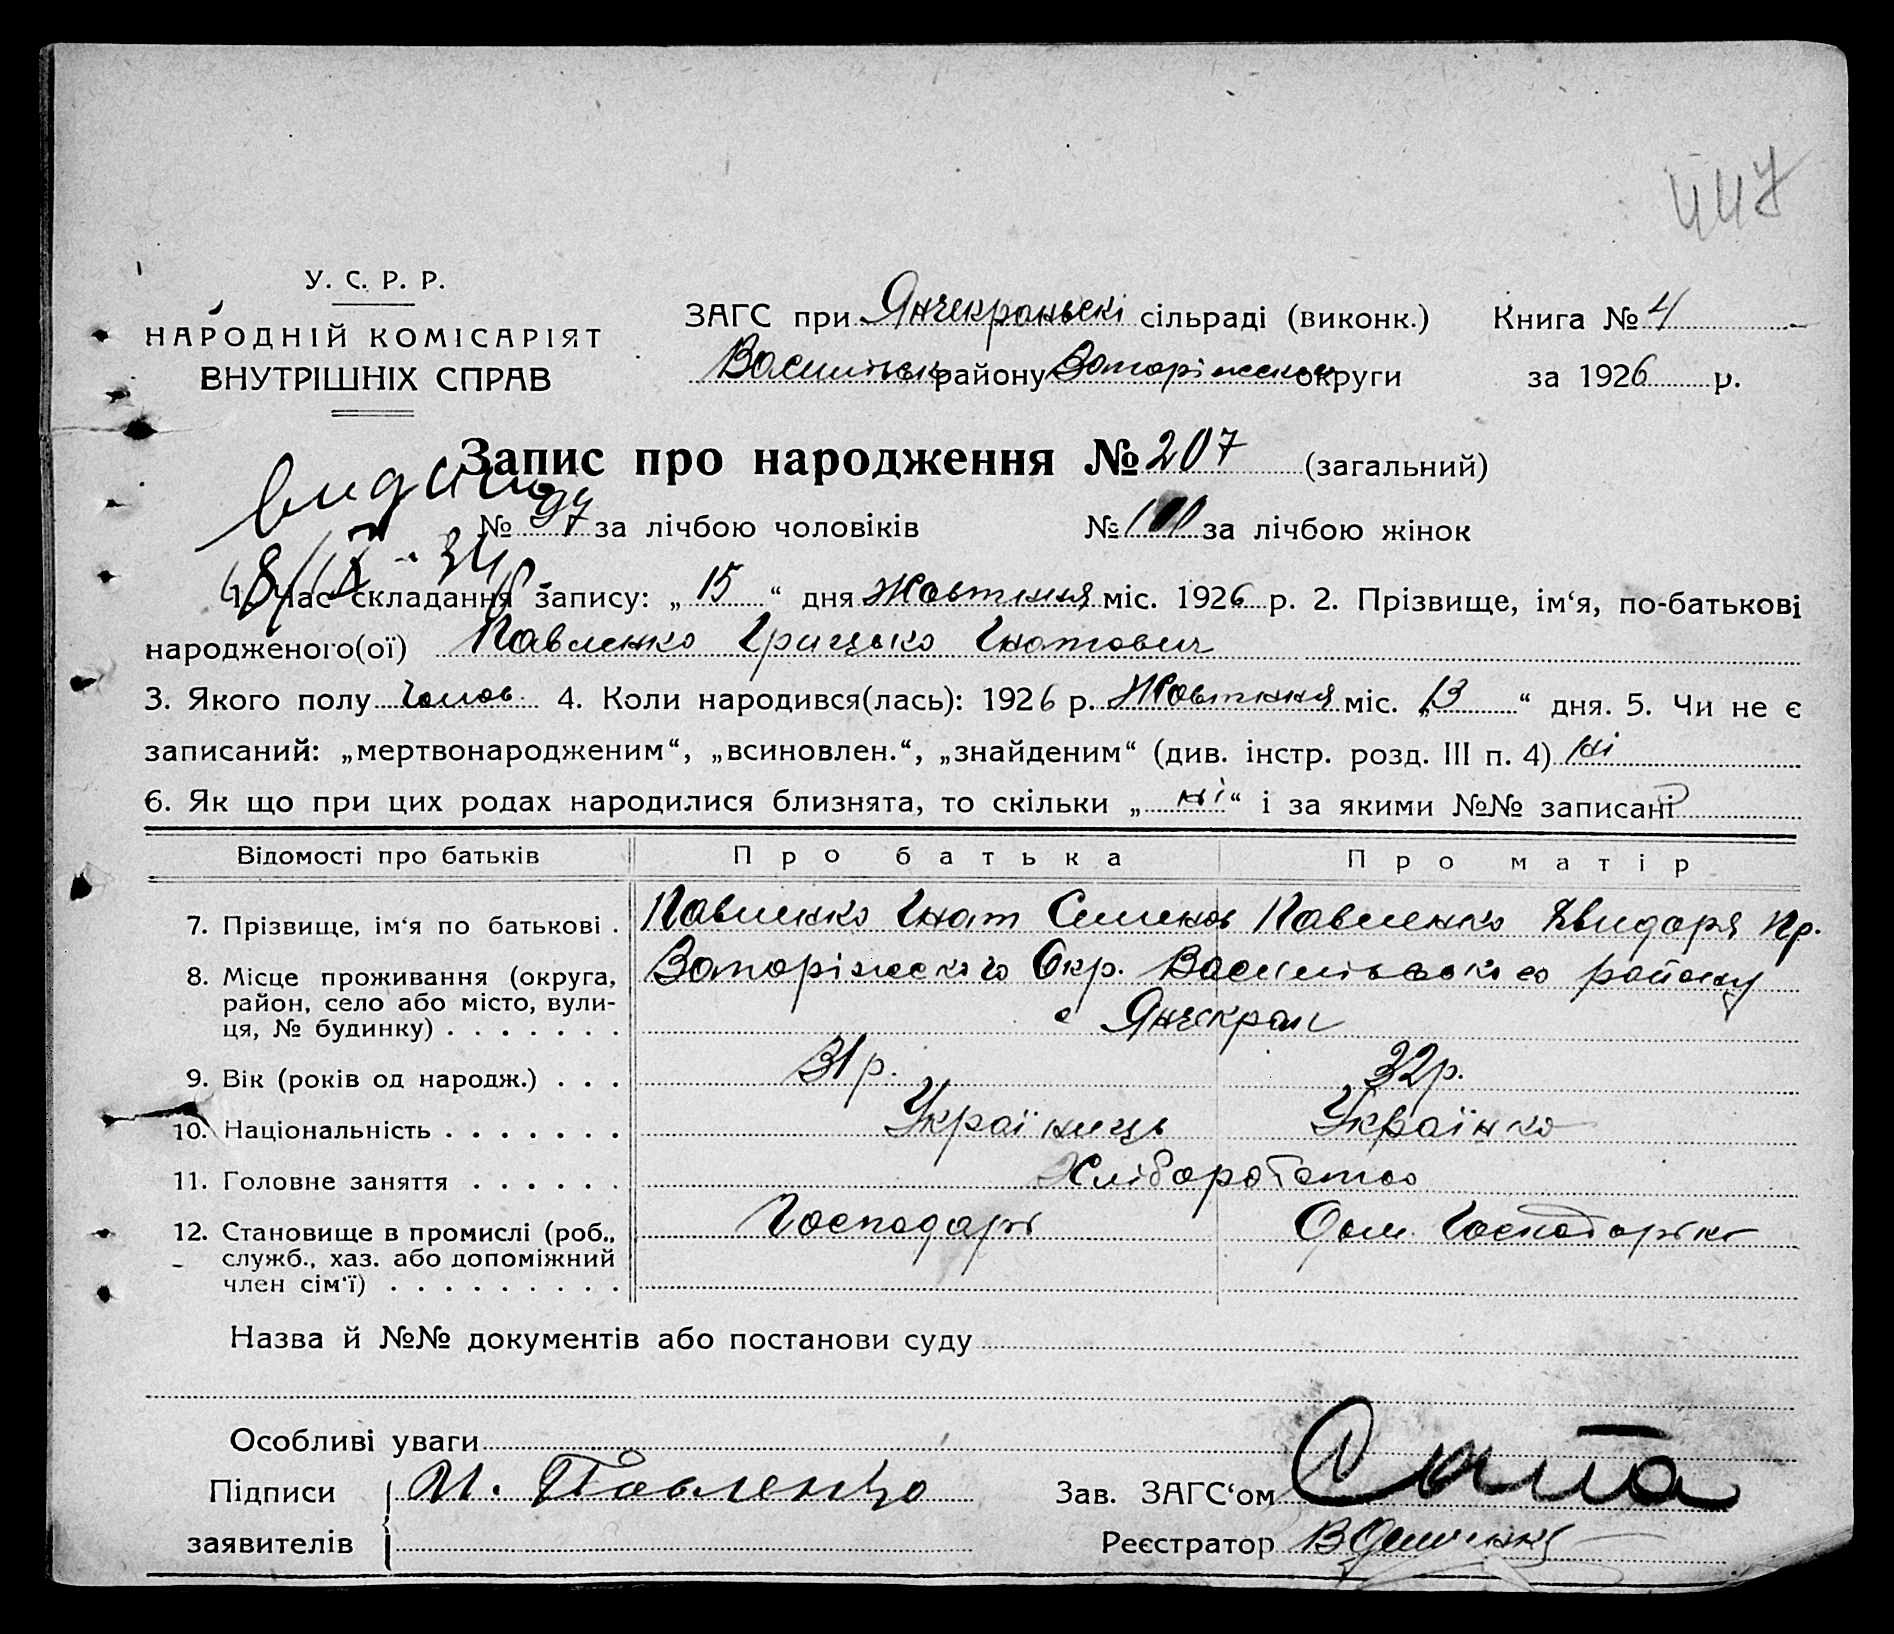 447
У. С. Р. Р.
НАРОДНІЙ КОМІСАРІЯТ
ВНУТРІШНІХ СПРАВ
ЗАГС при Янчекраньскі сільраді (виконк.) Книга № 4
Васильк району Запоріжськ округи за 1926 р.
Запис про народження № 207 (загальний)
№ 97 за лічбою чоловіків № за лічбою жінок
1. Час складання запису: „ 15 “ дня Жовтння міс. 1926 р. 2. Прізвище, ім‘я, по-батькові
народженого(ої) Павленко Грицько Гнатович
3. Якого полу чолов. 4. Коли народився(лась): 1926 р. Жовтння міс. „ 13 “ дня. 5. Чи не є
записаний: „мертвонародженим“, „всиновлен.“, „знайденим“ (див. інстр. розд. III п. 4) ні
6. Як що при цих родах народилися близнята, то скільки „ ні “ і за якими №№ записані
Відомості про батьків Про батька Про матір
7. Прізвище, ім‘я по батькові . Павленко Гнат Семенов Павленко Пр.
8. Місце проживання (округа, район, село або місто, вулиця, № будинку) . . . . . . . Запоріжского Окр. Васильевского району
с Янчекрак
9. Вік (років од народж.) . . . 31 р. 32 р.
10. Національність . . . . . . . Українець Українка
11. Головне заняття . . . . . . Хліборобство
12. Становище в промислі (роб., служб., хаз. або допоміжний член сім‘ї) . . . . . . . . . Господарь Дом. Господарька
Назва й №№ документів або постанови суду
Особливі уваги
Підписи заявителів И. Павленко
Зав. ЗАГС‘ом
Реєстратор